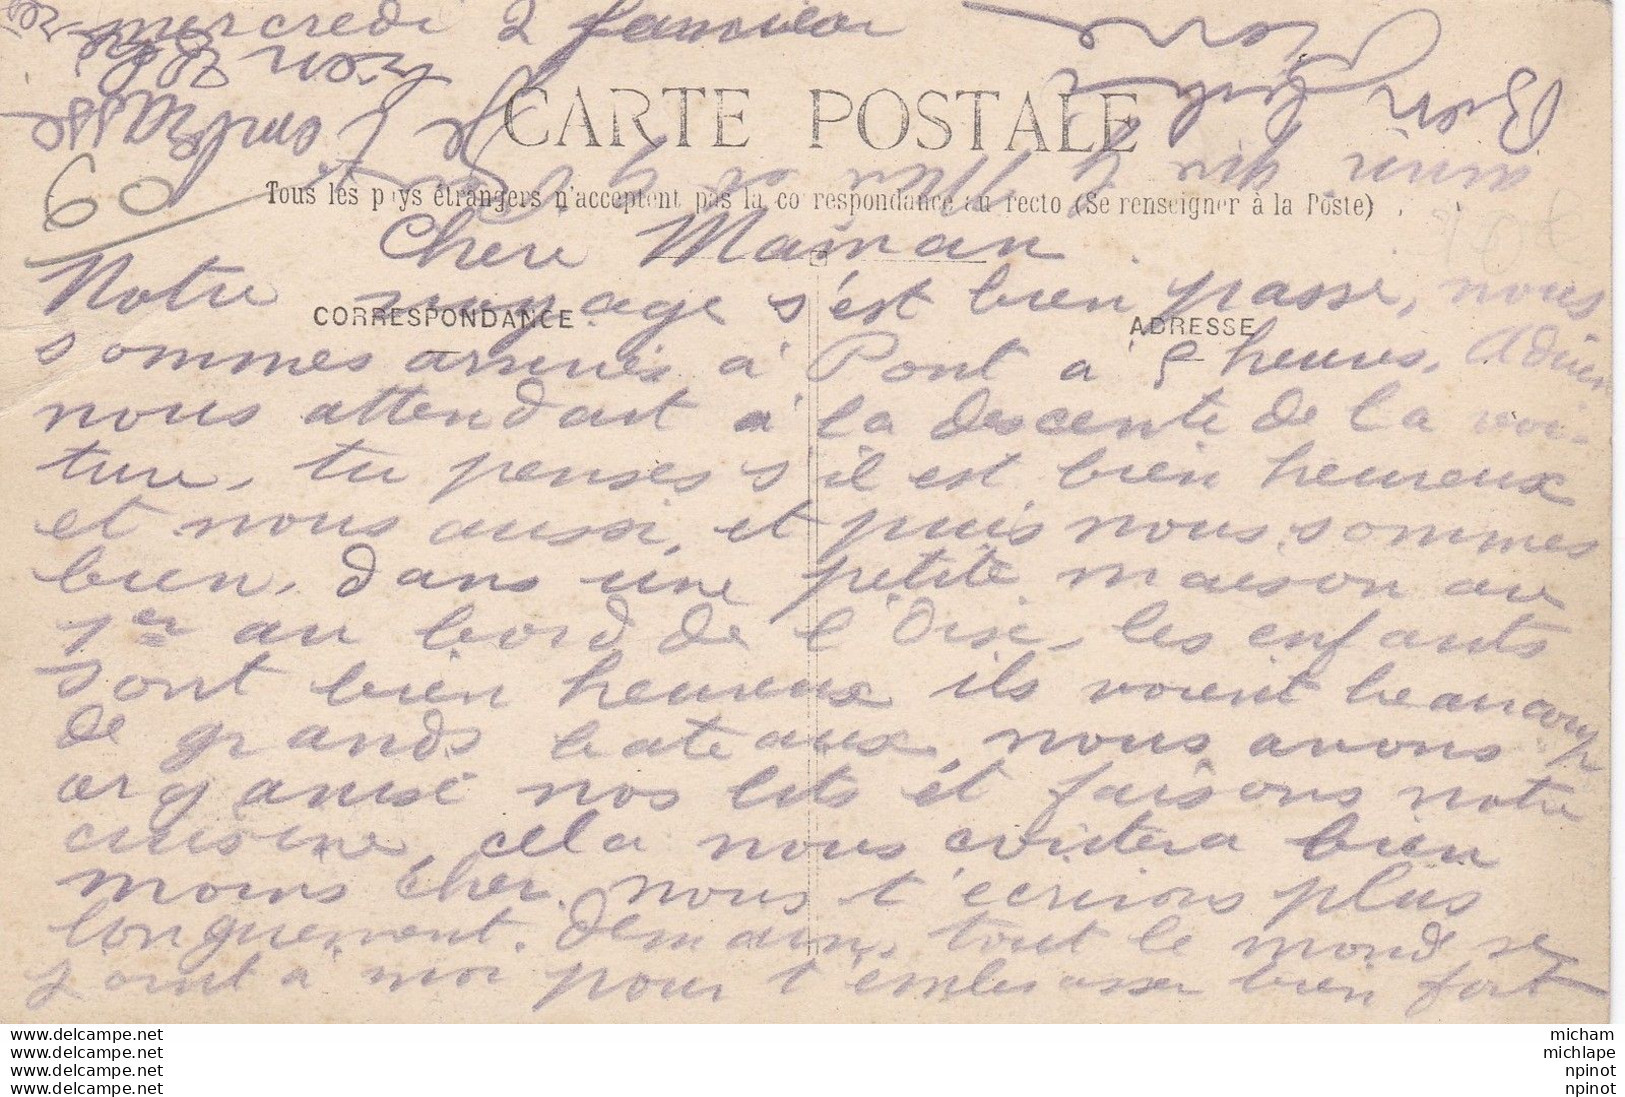 mercredi 2 janvier
CARTE POSTALE
Tous les pays étrangers n'acceptent pas la correspondance au recto (Se renseigner à la Poste)
60
Chere Maman
CORRESPONDANCE
ADRESSE
Notre voyage s'est bien passé, nous
sommes arrivés à Pont à 5 heures. Adrien
nous attendait à la descente de la voi-
ture, tu penses s'il est bien heureux
et nous aussi, et puis nous sommes
bien, dans une petite maison au
1er au bord de l'Oise, les enfants
sont bien heureux ils voient beaucoup
de grands bateaux, nous avons
organisé nos lits et faisons notre
cuisine, cela nous coutera bien
moins cher. nous t'ecrirons plus
longuement. Demain, tout le monde se
joint à moi pour t'embrasser bien fort
Bien
Je t'embrasse